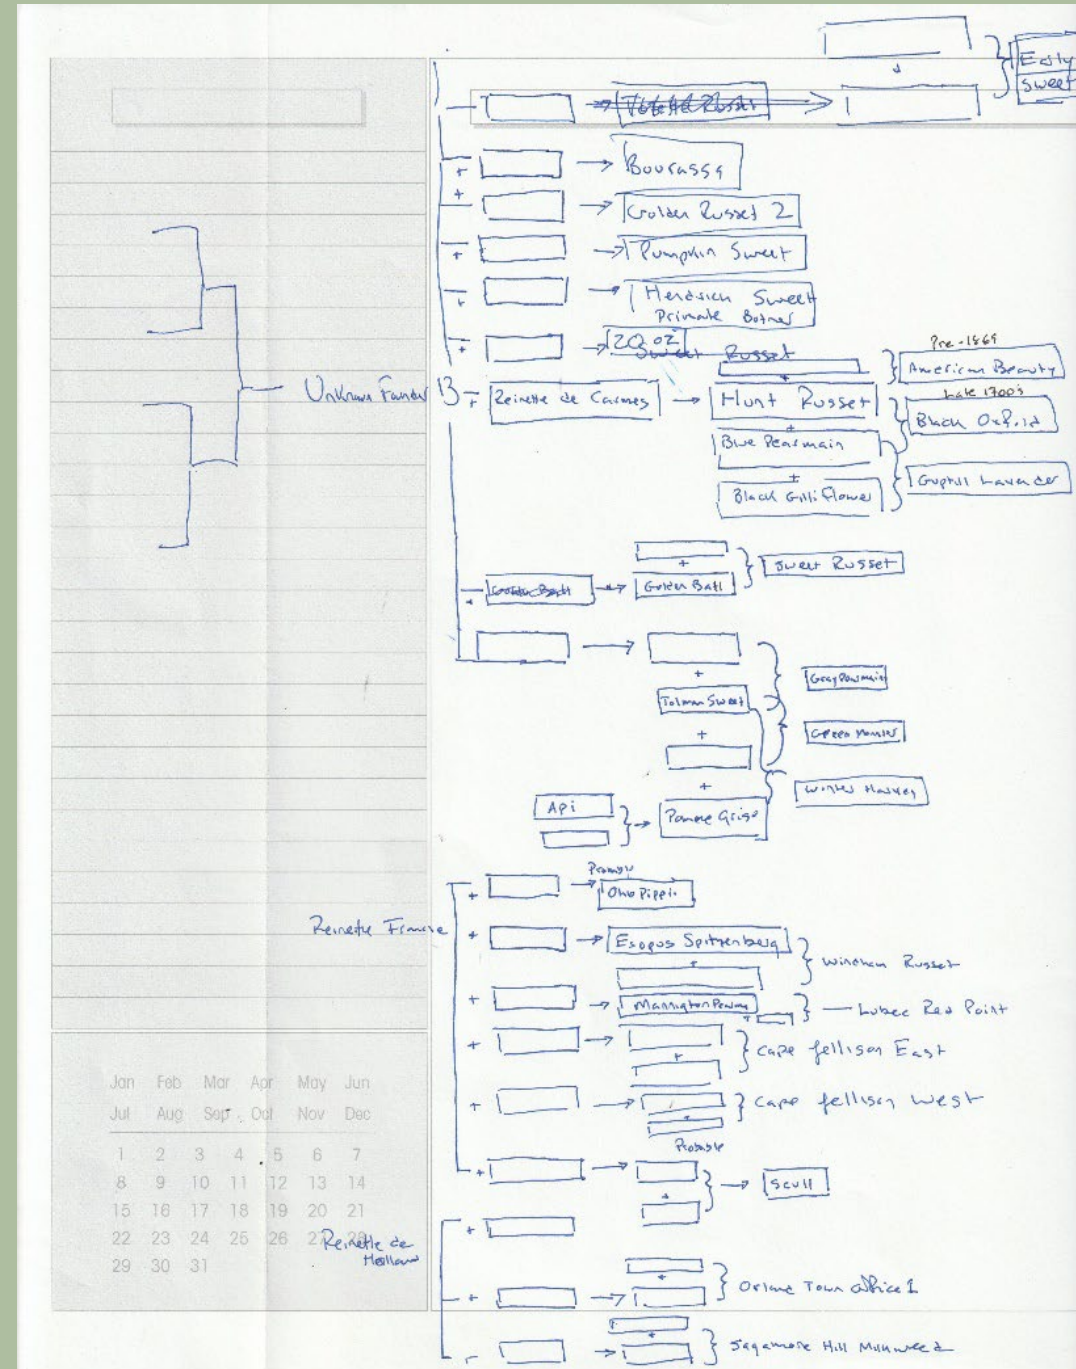 Early
Sweet
+
+ Bourassa
+
Golden Russet 2
+ Pumpkin Sweet
+ Hendrick Sweet
Primate
+ 20 oz
Sweet Russet
Pre-1869
American Beauty
+
Unknown Founder 13 + Reinette de Carmes Hunt Russet
Late 1700's
Black Oxford
+
Blue Pearmain
+
Black Gilliflower
Guptill Lavender
+
Sweet Russet
+ Golden Ball Golden Ball
Gray Pearmain
+
Tolman Sweet
+
+
Winter Harvey
Api
Pomme Grise
+ Ohio Pippin
Reinette Franche
+ Esopus Spitzenberg
+
Windham Russet
+ Mannington Pearmain
+
Lubec Red Point
+
+
Cape Jellison East
+
+
Cape Jellison West
Probable
+
+
Scull
+
Reinette de
Holland
+
+
Orland Town Office 1
+
Sagamore Hill Milkweed
Jan Feb Mar Apr May Jun
Jul Aug Sep Oct Nov Dec
1 2 3 4 5 6 7
8 9 10 11 12 13 14
15 16 17 18 19 20 21
22 23 24 25 26 27 28
29 30 31